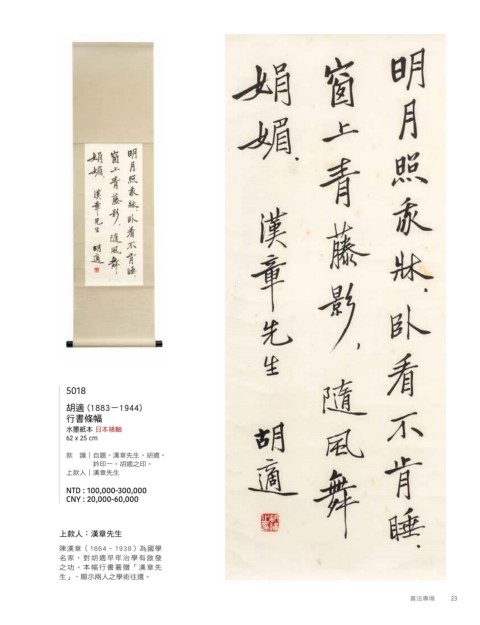 明月照我牀．臥看不肯睡．
窗上青藤影，隨風舞
娟媚． 漢章先生 胡適
5018
胡適 (1883－1944)
行書條幅
水墨紙本 日本裱軸
62 x 25 cm
款　識｜自題。漢章先生。胡適。
鈐印一。胡適之印。
上款人｜漢章先生
NTD : 100,000-300,000
CNY : 20,000-60,000
上款人：漢章先生
陳漢章（1864－1938）為國學
名家，對胡適早年治學有啟發
之功。本幅行書署贈「漢章先
生」，顯示兩人之學術往還。
明月照我牀．臥看不肯睡．
窗上青藤影，隨風舞
娟媚． 漢章先生 胡適
書法專場 23